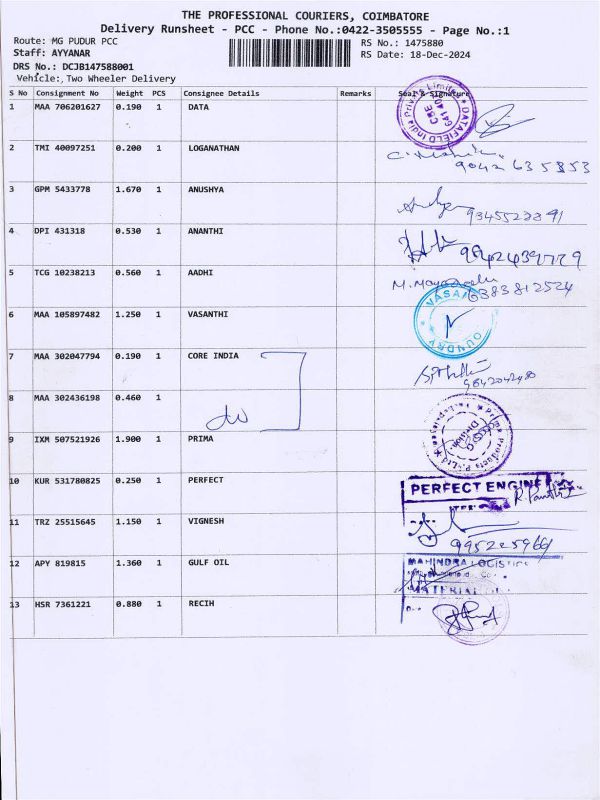 THE PROFESSIONAL COURIERS, COIMBATORE
Delivery Runsheet - PCC - Phone No.:0422-3505555 - Page No.:1
Route: MG PUDUR PCC
RS No.: 1475880
Staff: AYYANAR
RS Date: 18-Dec-2024
DRS No.: DCJB147588001
Vehicle: Two Wheeler Delivery
S No Consignment No Weight PCS Consignee Details Remarks Seal & Signature
1 MAA 706201627 0.190 1 DATA
DATAFIELD India Private Limited
CBE
641 40
2 TMI 40097251 0.200 1 LOGANATHAN
9042635853
3 GPM 5433778 1.670 1 ANUSHYA
4 DPI 431318 0.530 1 ANANTHI
5 TCG 10238213 0.560 1 AADHI
6383812524
6 MAA 105897482 1.250 1 VASANTHI
VASAN
FOUNDRY
7 MAA 302047794 0.190 1 CORE INDIA
8 MAA 302436198 0.460 1
do
9 IXM 507521926 1.900 1 PRIMA
10 KUR 531780825 0.250 1 PERFECT
PERFECT ENGINE
11 TRZ 25515645 1.150 1 VIGNESH
12 APY 819815 1.360 1 GULF OIL
MAHINDRA LOGISTIC
MATERIAL
13 HSR 7361221 0.880 1 RECIH